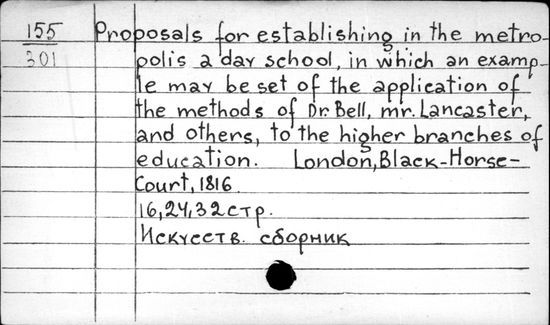 155 Proposals for establishing in the metro-
301 polis a day school, in which an examp-
le may be set of the application of
the methods of Dr. Bell, mr. Lancaster,
and others, to the higher branches of
education. London, Black-Horse-
Court, 1816.
16, 24, 32 стр.
Искусств. сборник